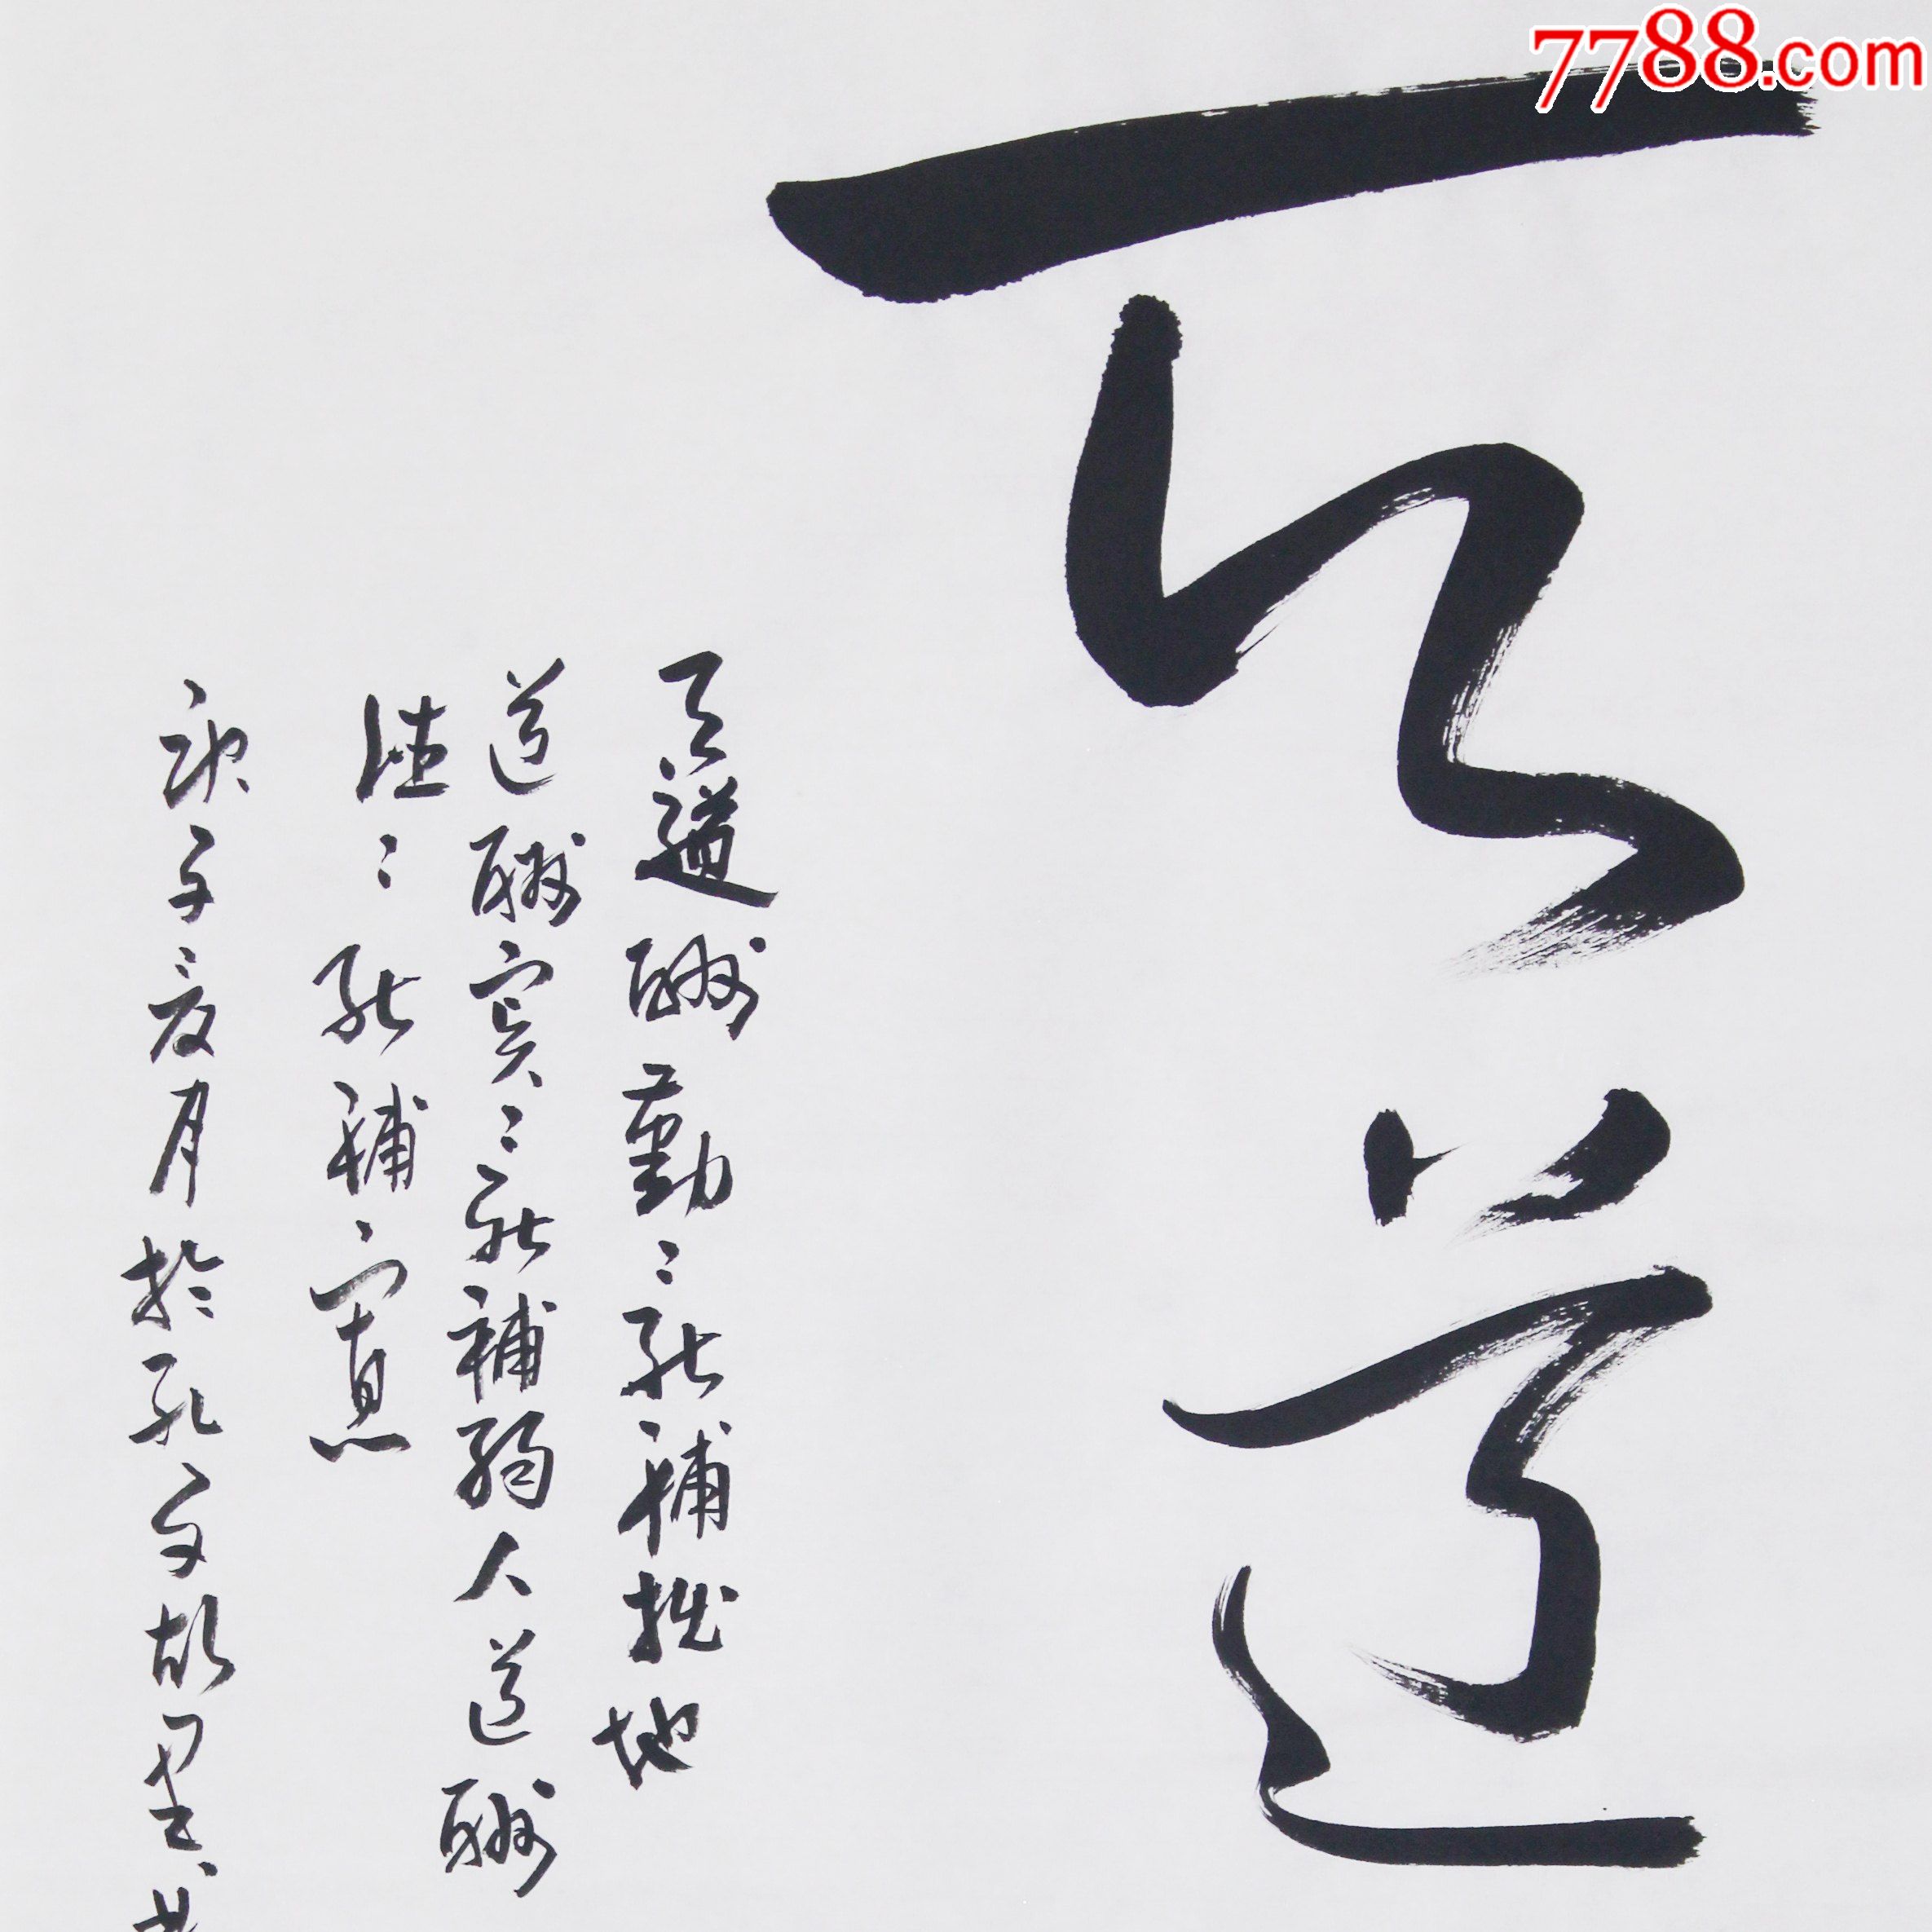 7788.com
天道
天道酬勤〻能補拙地
道酬實〻能補弱人道酬
德〻能補寡
庚子夏月於孔子故里